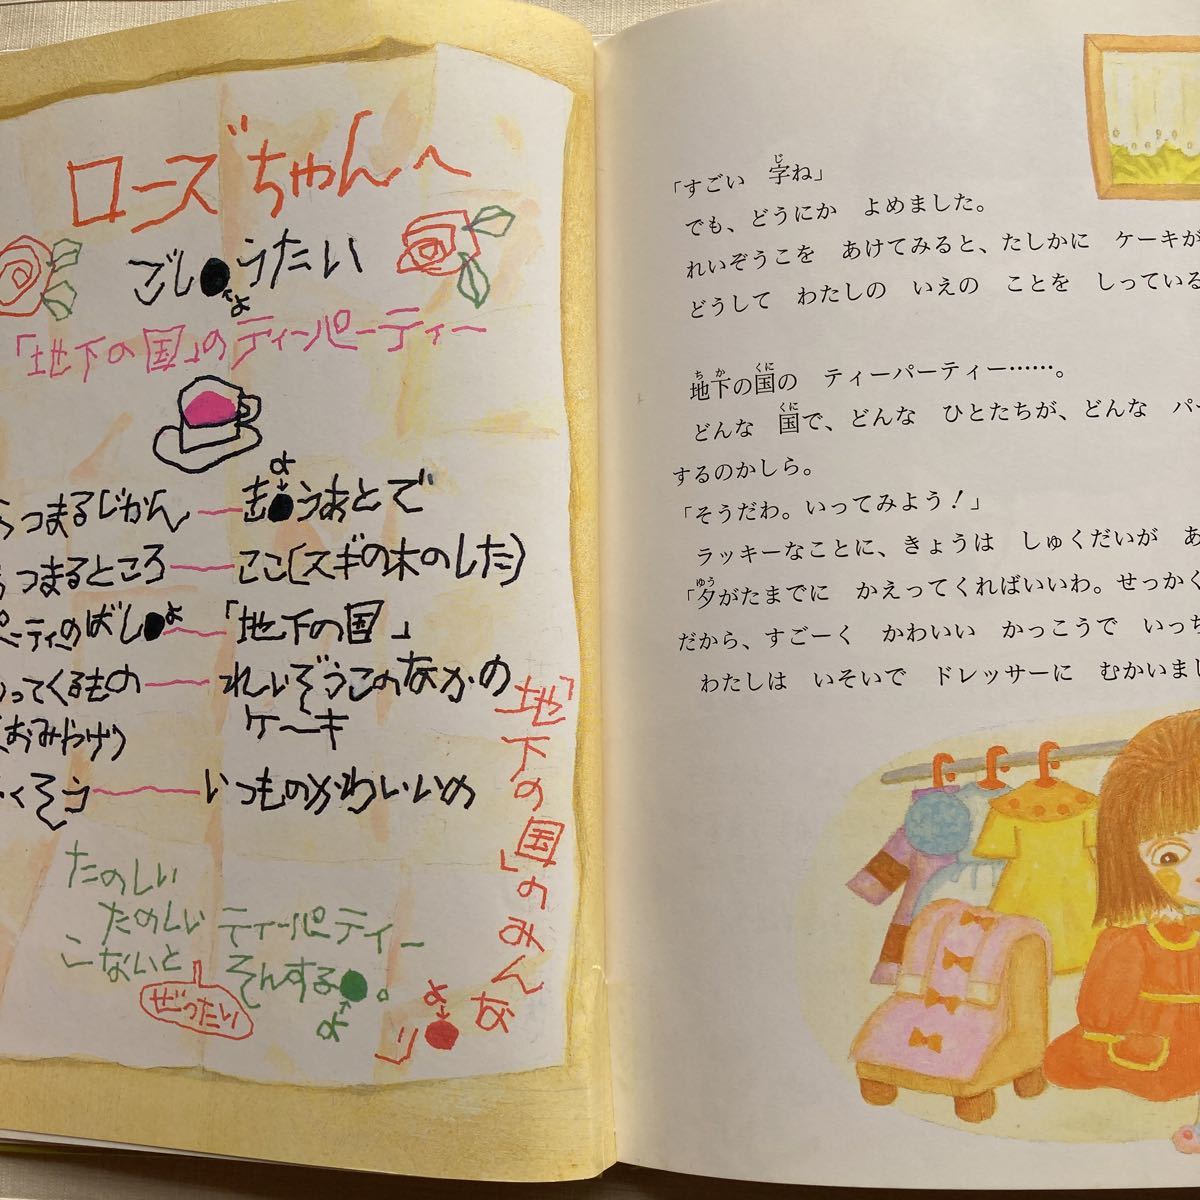 ローズちゃんへ
ごし●うたい
よ
「地下の国」のティーパーティー
つまるじかん — き●うあとで
よ
つまるところ — ここ(スギの木のした)
パーティのばし●よ — 「地下の国」
ってくるもの — れいぞうこのなかの
おみやげ) ケーキ
くそう — いつものかわいいの
たのしい
たのしい ティーパーティー
こないと そんする●。
ぜったい
よ
「地下の国」のみんな
よ
り●
「すごい 字ね」
じ
でも、どうにか よめました。
れいぞうこを あけてみると、たしかに ケーキが
どうして わたしの いえの ことを しっている
ちか くに
地下の国の ティーパーティー……。
くに
どんな 国で、どんな ひとたちが、どんな パ
するのかしら。
「そうだわ。いってみよう!」
ラッキーなことに、きょうは しゅくだいが あ
ゆう
「夕がたまでに かえってくればいいわ。せっかく
だから、すごーく かわいい かっこうで いっち
わたしは いそいで ドレッサーに むかいまし